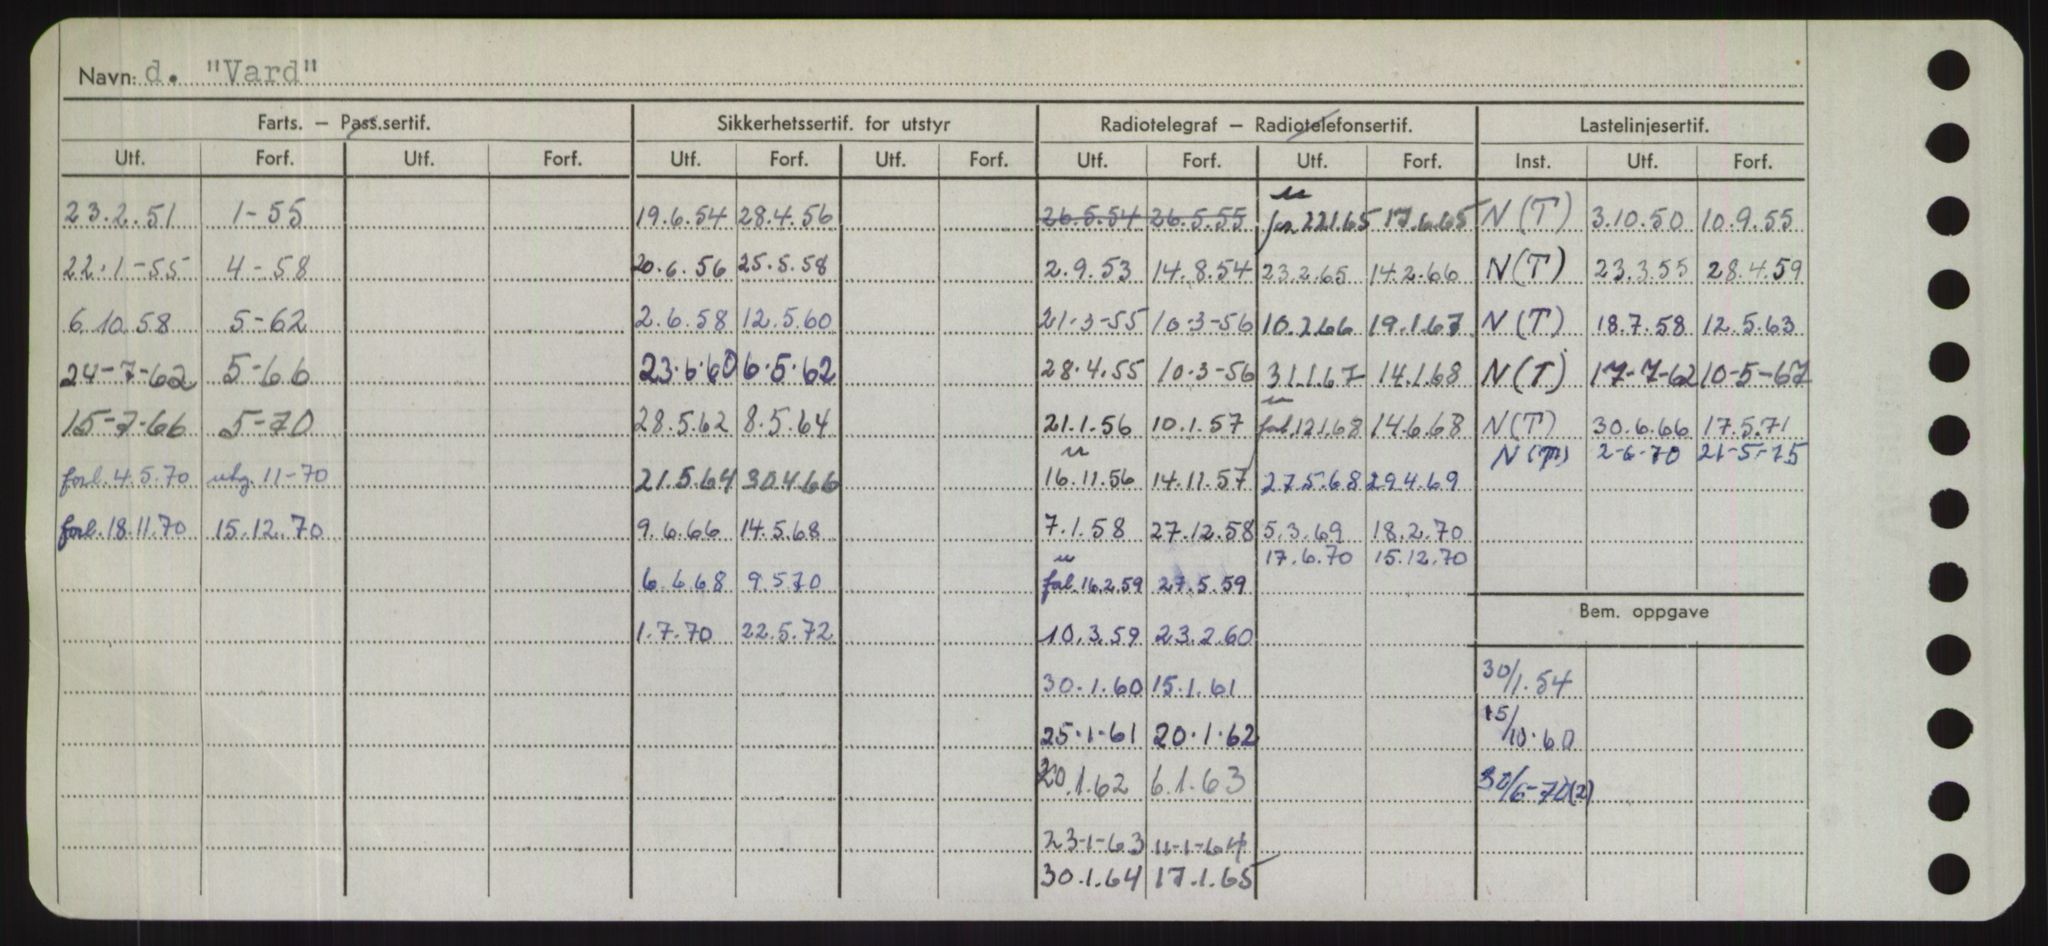 Navn: d. "Vard"
Farts. — Pass.sertif. Sikkerhetssertif. for utstyr Radiotelegraf — Radiotelefonsertif. Lastelinjesertif.
Utf. Forf. Utf. Forf. Utf. Forf. Utf. Forf. Utf. Forf. Utf. Forf. Inst. Utf. Forf.
23.2.51 1-55 19.6.54 28.4.56 26.5.54 26.5.55 22.1.65 17.6.65 N(T) 3.10.50 10.9.55
22.1-55 4-58 20.6.56 25.5.58 2.9.53 14.8.54 23.2.65 14.2.66 N(T) 23.3.55 28.4.59
6.10.58 5-62 2.6.58 12.5.60 21-3-55 10-3-56 10.2.66 19.1.67 N(T) 18.7.58 12.5.63
24-7-62 5-66 23.6.60 6.5.62 28.4.55 10-3-56 31.1.67 14.1.68 N(T) 17-7-62 10-5-67
15-7-66 5-70 28.5.62 8.5.64 21.1.56 10.1.57 12.1.68 14.6.68 N(T) 30.6.66 17.5.71
N(T) 2-6-70 21-5-75
forl. 4.5.70 utg. 11-70 21.5.64 30.4.66 16.11.56 14.11.57 27.5.68 29.4.69
forl. 18.11.70 15.12.70 9.6.66 14.5.68 7.1.58 27.12.58 5.3.69 18.2.70
17.6.70 15.12.70
6.6.68 9.5.70 16.2.59 27.5.59
Bem. oppgave
1.7.70 22.5.72 10.3.59 23.2.60
30.1.60 15.1.61 30/1.54
25.1-61 20.1.62 15/10.60
20.1.62 6.1.63 30/6-70(2)
23-1-63 11-1-64
30.1.64 17.1.65